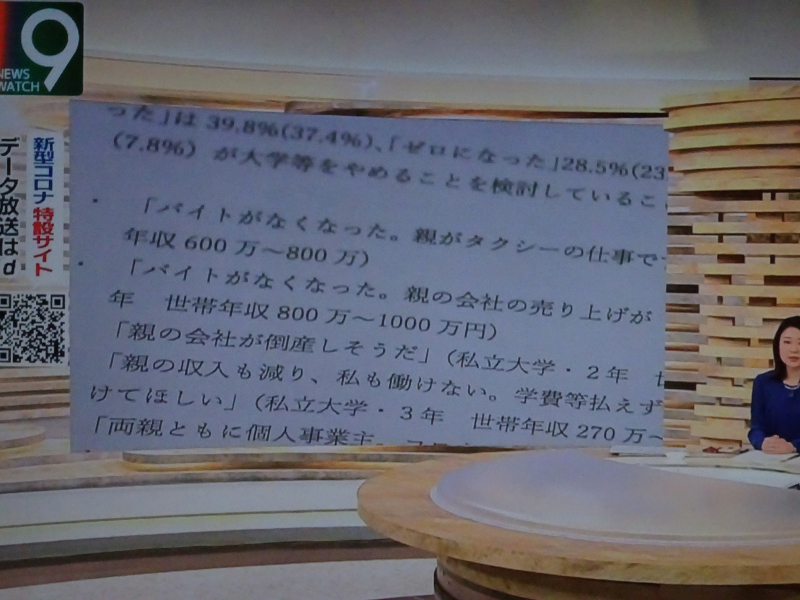 NEWS
WATCH 9
新型コロナ 特設サイト
データ放送はd
った」は 39.8%(37.4%)、「ゼロになった」28.5%(23
(7.8%) が大学等をやめることを検討しているこ
・ 「バイトがなくなった。親がタクシーの仕事で
年収 600 万～800 万)
・ 「バイトがなくなった。親の会社の売り上げが
年 世帯年収 800 万～1000 万円)
「親の会社が倒産しそうだ」(私立大学・2年
「親の収入も減り、私も働けない。学費等払えず
けてほしい」(私立大学・3年 世帯年収 270 万～
「両親ともに個人事業主。